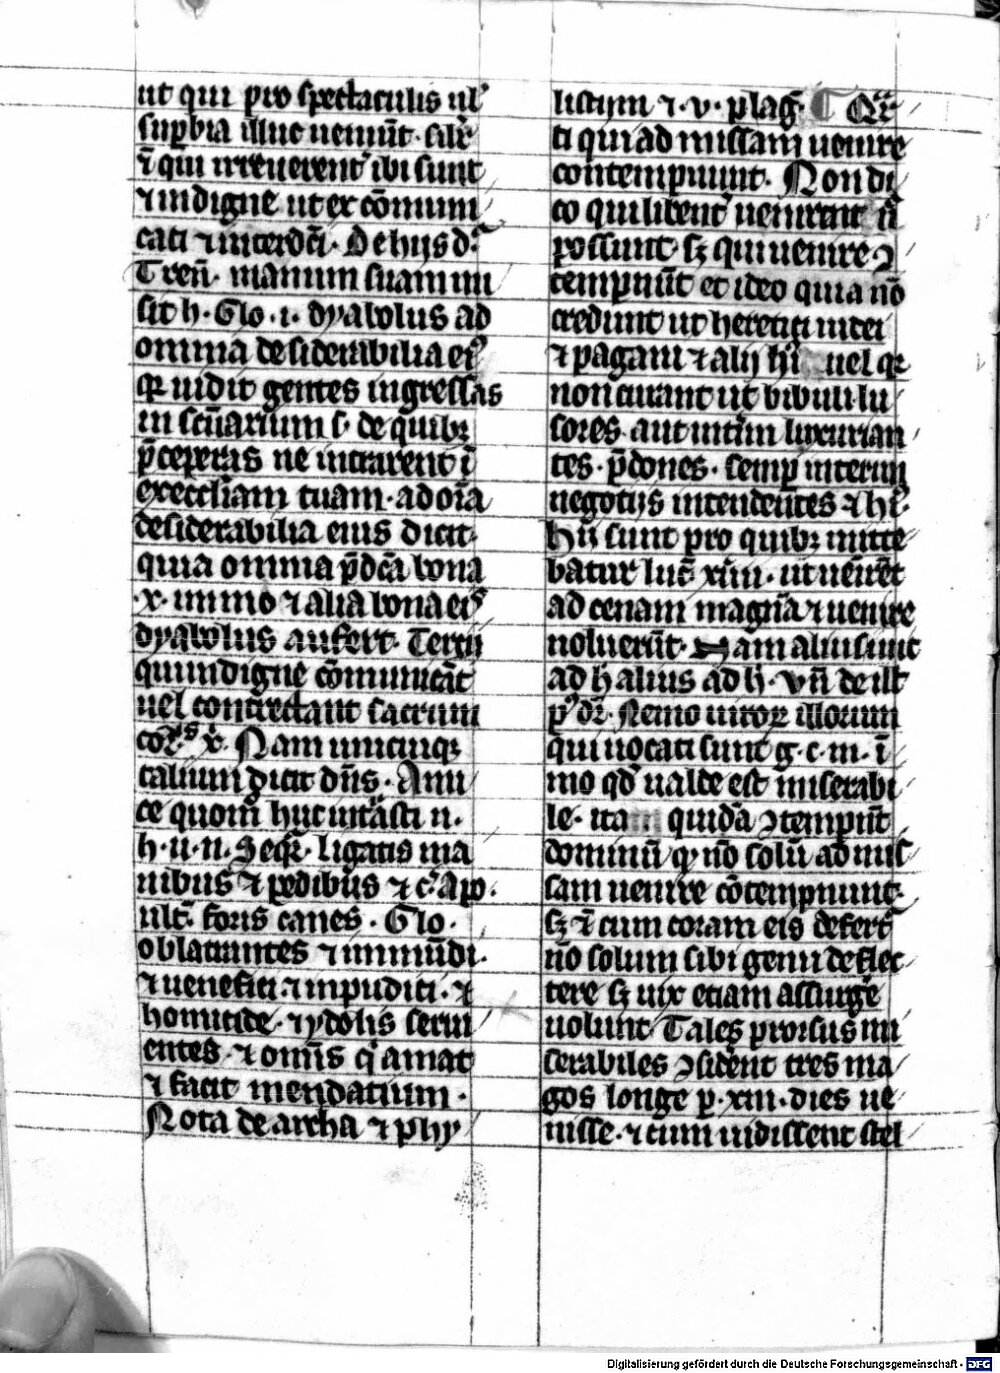 ut qui pro spectaculis ul'
sup̄bia illuc ueniūt · Silr̄
⁊ qui irreuerent̄ ibi sunt
⁊ indigne ut excōmuni
cati ⁊ interdc̄i · De hijs dr̄
Tren̄ · manum suam mi
sit h̄ · Glo · i · dyabolus ad
omnia desiderabilia ei9
qr uidit gentes ingressas
in scūarium s · de quibꝫ
p̄ceperas ne intrarent ī
eccl̄iam tuam · ad oīa
desiderabilia eius dicit
quia omnia p̄dc̄a bona
·x· immo ⁊ alia bona ei9
dyabolus aufert · Tercij
qui indigne cōmunicāt
uel contrectant sacrum
cor9 x̄ · Nam unicuiqꝫ
talium dicit dn̄s · Ami
ce quom̄ huc intrasti n ·
h · u · n · Seqr̄ · ligatis ma
nibus ⁊ pedibus ⁊ c̄ · Apo ·
ult̄ · foris canes · Glo ·
oblatrantes ⁊ immūdi ·
⁊ uenefici · ⁊ impudici · ⁊
homicide · ⁊ ydolis serui
entes · ⁊ omīs q̄ amat
⁊ facit mendacium ·
Nota de archa ⁊ phy
listijm ⁊ · v · plaḡ · ¶ Qr̄
ti qui ad missam uenire
contempnunt · Non di
co qui libent̄ uenirent n̄
possunt · sꝫ qui uenire ꝯ
tempnūt et ideo quia nō
credunt ut heretici iudei
⁊ pagani ⁊ alij hi9 uel qr
non curant ut bibuli lu
sores · aut int̄im luxurian
tes · p̄dones · semp̄ interim
negotijs intendentes ⁊ hi9
Hii sunt pro quibꝫ mitte
batur luc̄ xiiii · ut uenirēt
ad cenam magnā ⁊ uenire
noluerūt · Nam alius iuit
ad h̄ alius ad h̄ · Vn̄ de ill'
p9 dr̄ · Nemo uiroꝝ illorum
qui uocati sunt g · c · m · ī
mo qd̄ ualde est miserabi
le · ita quidā ꝯtempnūt
dominū qꝫ nō solū ad mis
sam uenire cōtempnunt
sꝫ ⁊ cum coram eis defert̄
nō solum sibi genu deflec
tere sꝫ uix etiam assurḡe
uolunt Tales prorsus mi
serabiles ꝯsiderent tres ma
gos longe p · xiii · dies ue
nisse · ⁊ cum uidissent stel
Digitalisierung gefördert durch die Deutsche Forschungsgemeinschaft - DFG